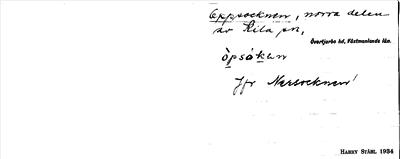 Oppsocknen, norra delen
av Kila sn,
Övertjurbo hd, Västmanlands län.
òpsókən
Jfr Nersocknen!
HARRY STÅHL 1934